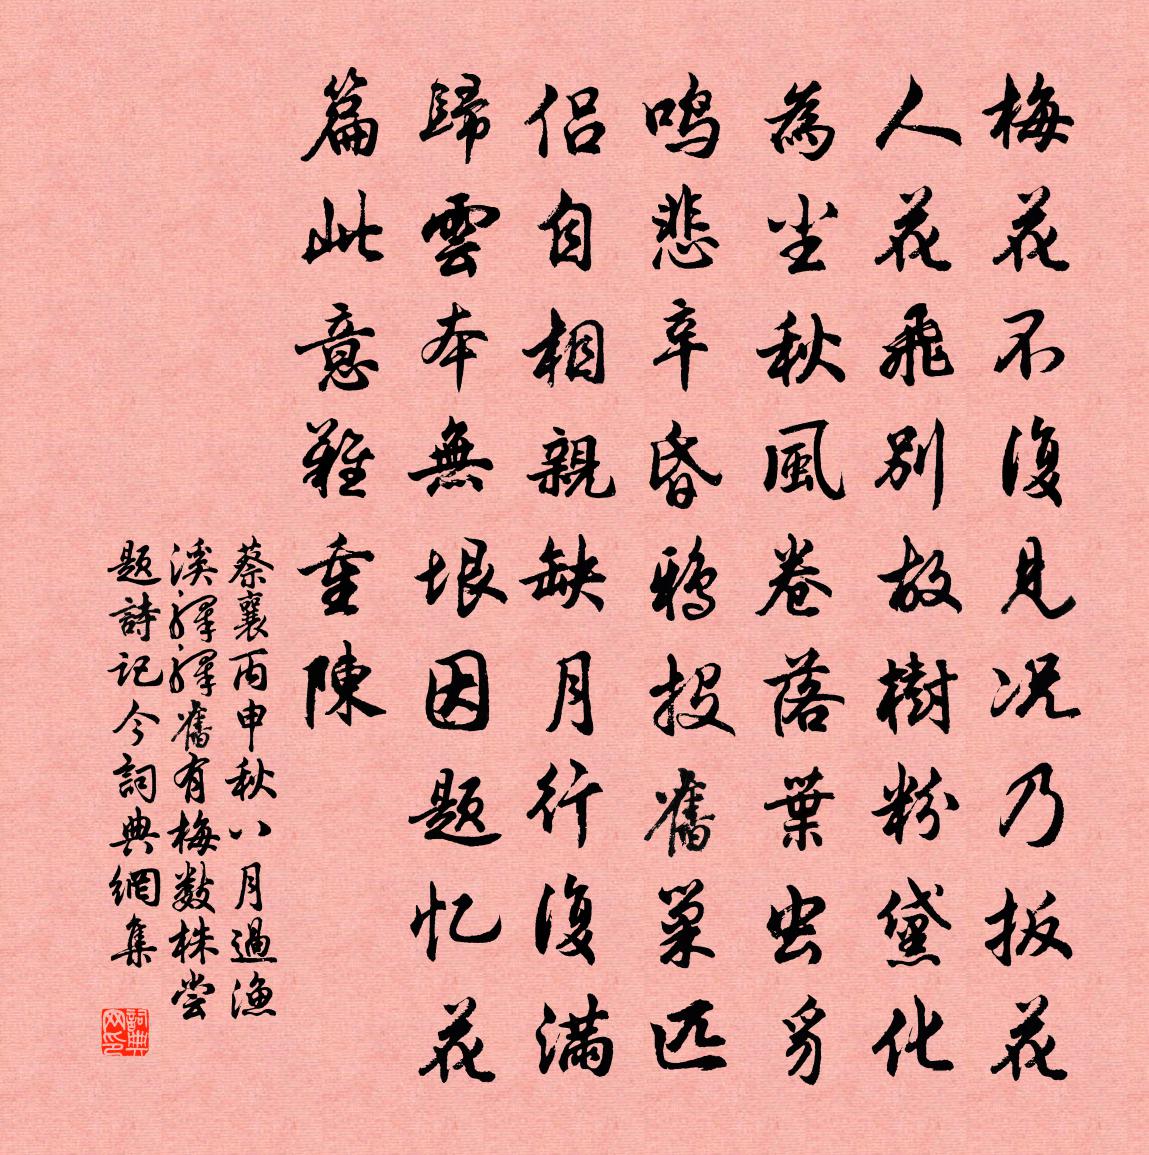 梅花不復見况乃扳花
人花飛別故樹粉黛化
為尘秋風卷落葉虫豸
鸣悲辛昏鴉投舊巢匹
侣自相親缺月行復满
歸雲本無垠因题忆花
篇此意難重陳
蔡襄丙申秋八月過渔
溪驛驛舊有梅数株尝
题詩记今詞典網集
詞典网印